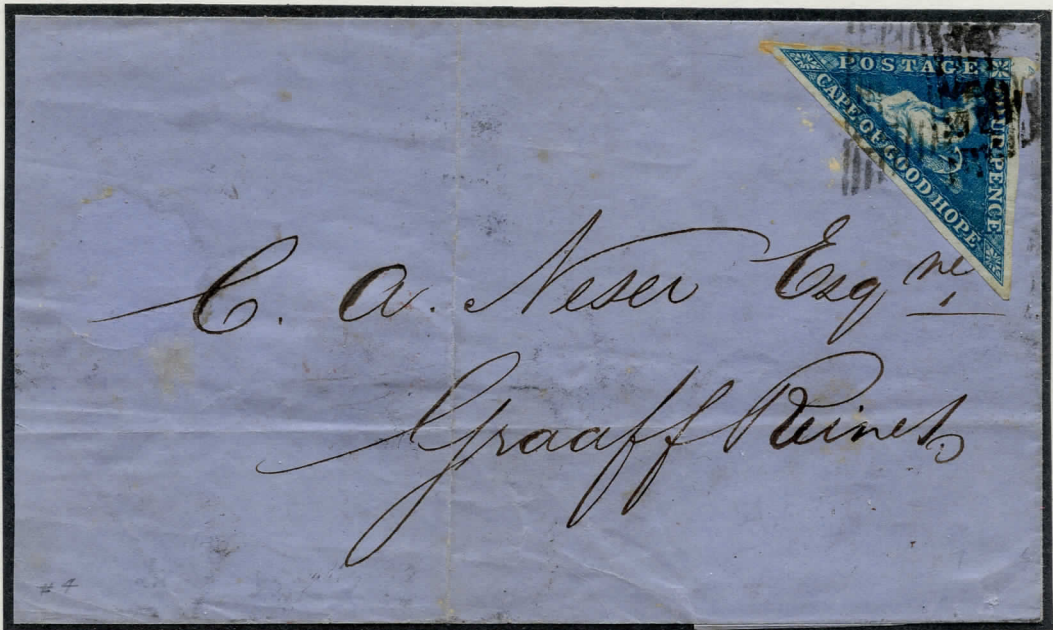 POSTAGE
CAPE OF GOOD HOPE
FOUR PENCE
C. A. Neser Esqre
Graaff Reinet
#4